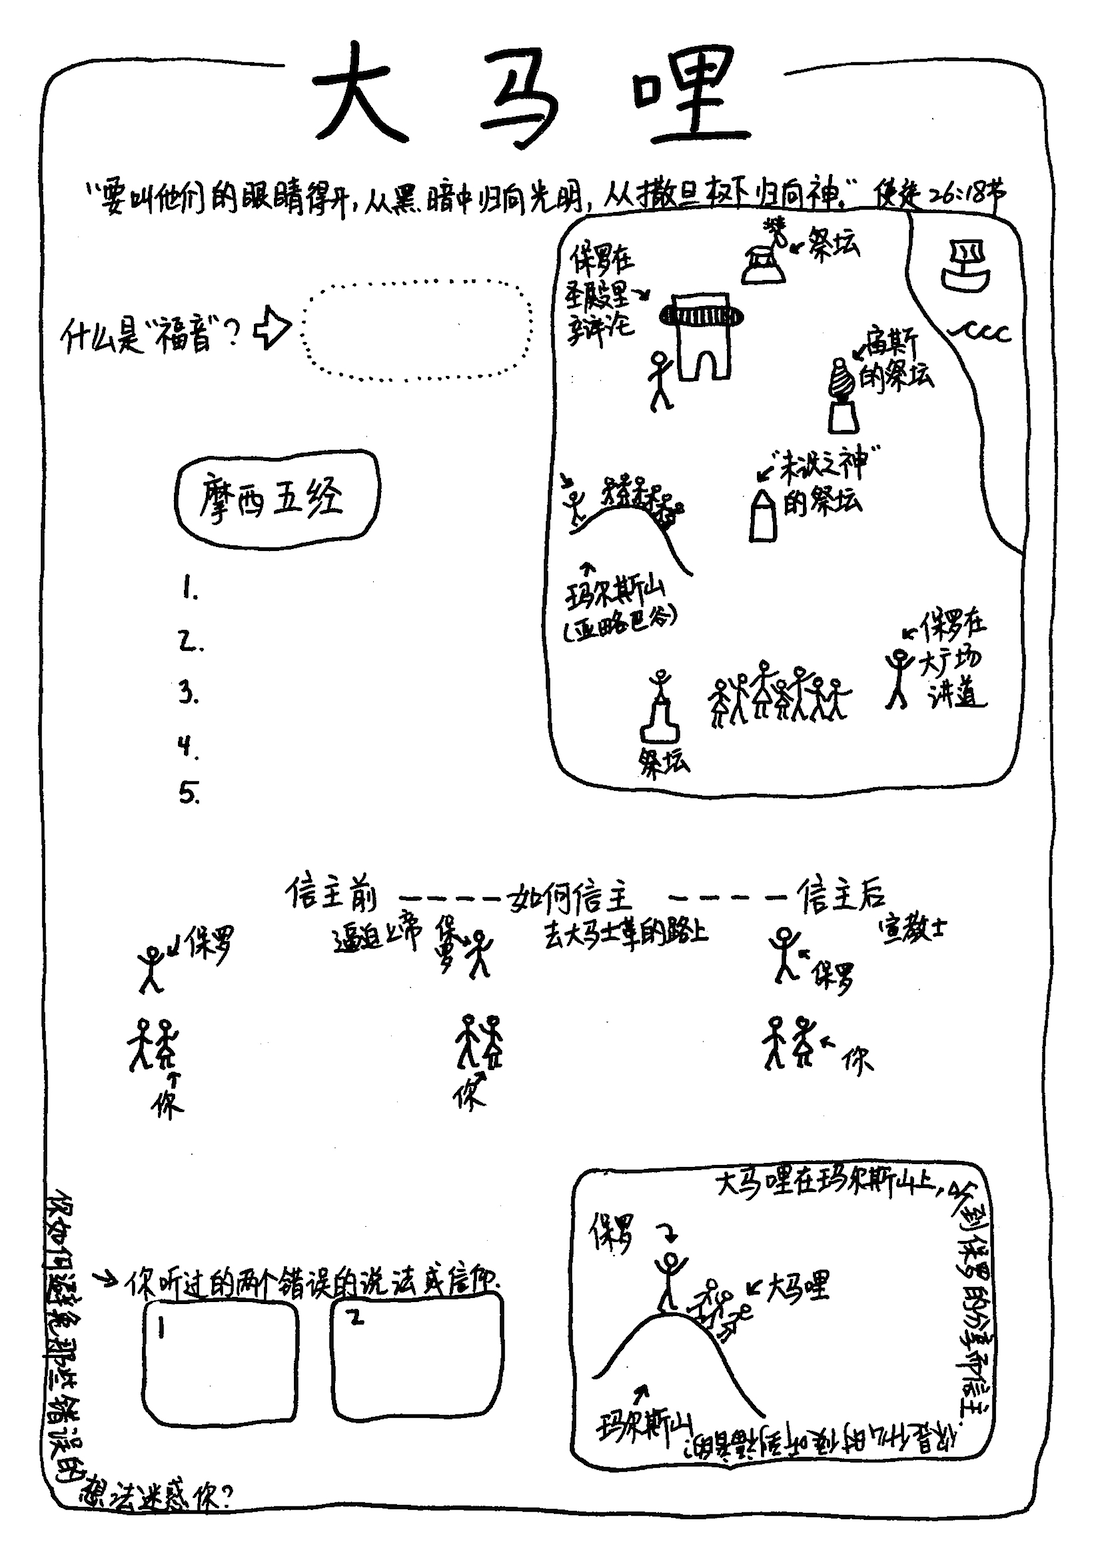 大马哩
“要叫他们的眼睛得开,从黑暗中归向光明,从撒旦权下归向神。” 使徒26:18节
什么是“福音”?
保罗在
圣殿里
辩论
祭坛
宙斯
的祭坛
“未识之神”
的祭坛
玛尔斯山
(亚略巴谷)
保罗在
大广场
讲道
祭坛
摩西五经
1.
2.
3.
4.
5.
信主前 ---- 如何信主 ---- 信主后
保罗
逼迫上帝
保罗
去大马士革的路上
保罗
宣教士
你
你
你
你如何避免那些错误的
想法迷惑你?
你听过的两个错误的说法或信仰.
1
2
大马哩在玛尔斯山上,听
到保罗的分享而信主.
你是什么时候听到福音的?
保罗
大马哩
玛尔斯山